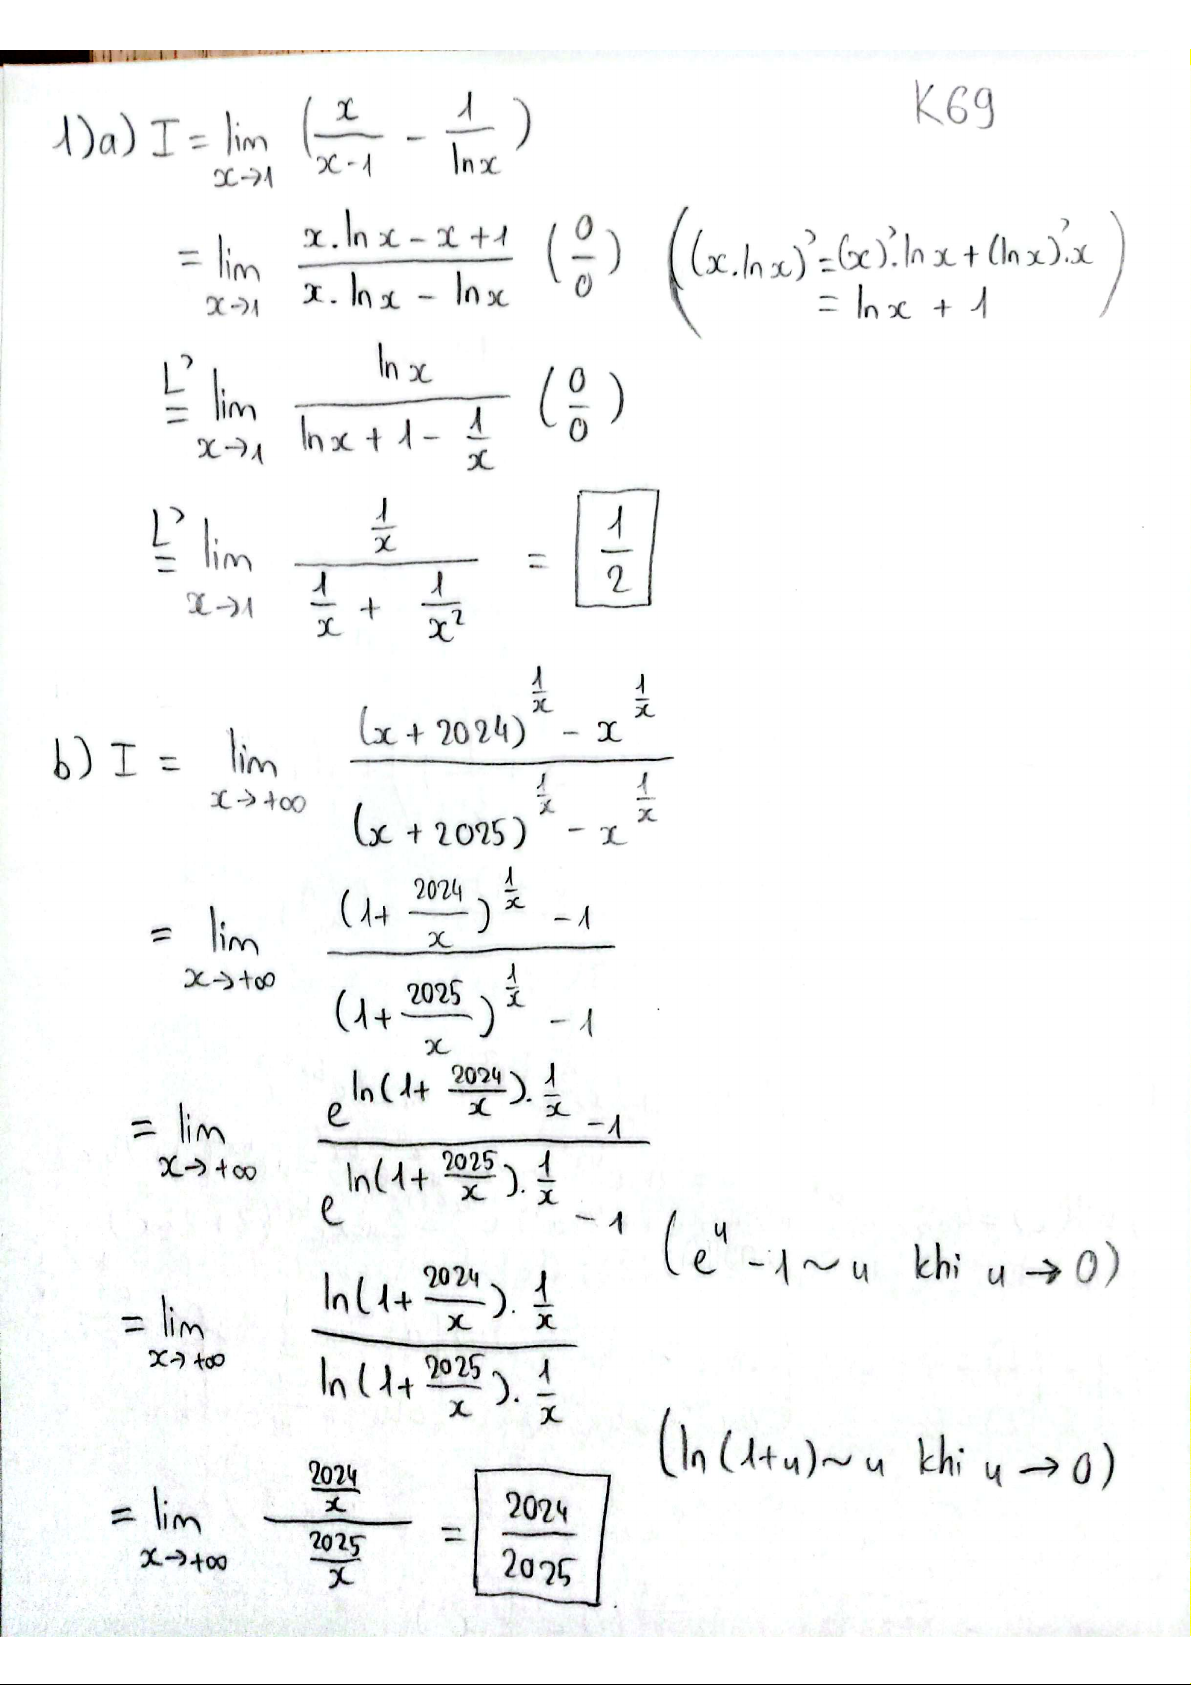 K69
1)a) I = lim_{x→1} (x/(x-1) - 1/ln x)
= lim_{x→1} (x.ln x - x + 1)/(x.ln x - ln x) (0/0) ((x.ln x)' = (x)'.ln x + (ln x)'.x
= ln x + 1)
L'= lim_{x→1} ln x/(ln x + 1 - 1/x) (0/0)
L'= lim_{x→1} (1/x)/(1/x + 1/x²) = 1/2
b) I = lim_{x→+∞} ((x + 2024)^{1/x} - x^{1/x})/((x + 2025)^{1/x} - x^{1/x})
= lim_{x→+∞} ((1 + 2024/x)^{1/x} - 1)/((1 + 2025/x)^{1/x} - 1)
= lim_{x→+∞} (e^{ln(1 + 2024/x).1/x} - 1)/(e^{ln(1 + 2025/x).1/x} - 1)
(e^u - 1 ~ u khi u → 0)
= lim_{x→+∞} (ln(1 + 2024/x).1/x)/(ln(1 + 2025/x).1/x)
(ln(1+u) ~ u khi u → 0)
= lim_{x→+∞} (2024/x)/(2025/x) = 2024/2025